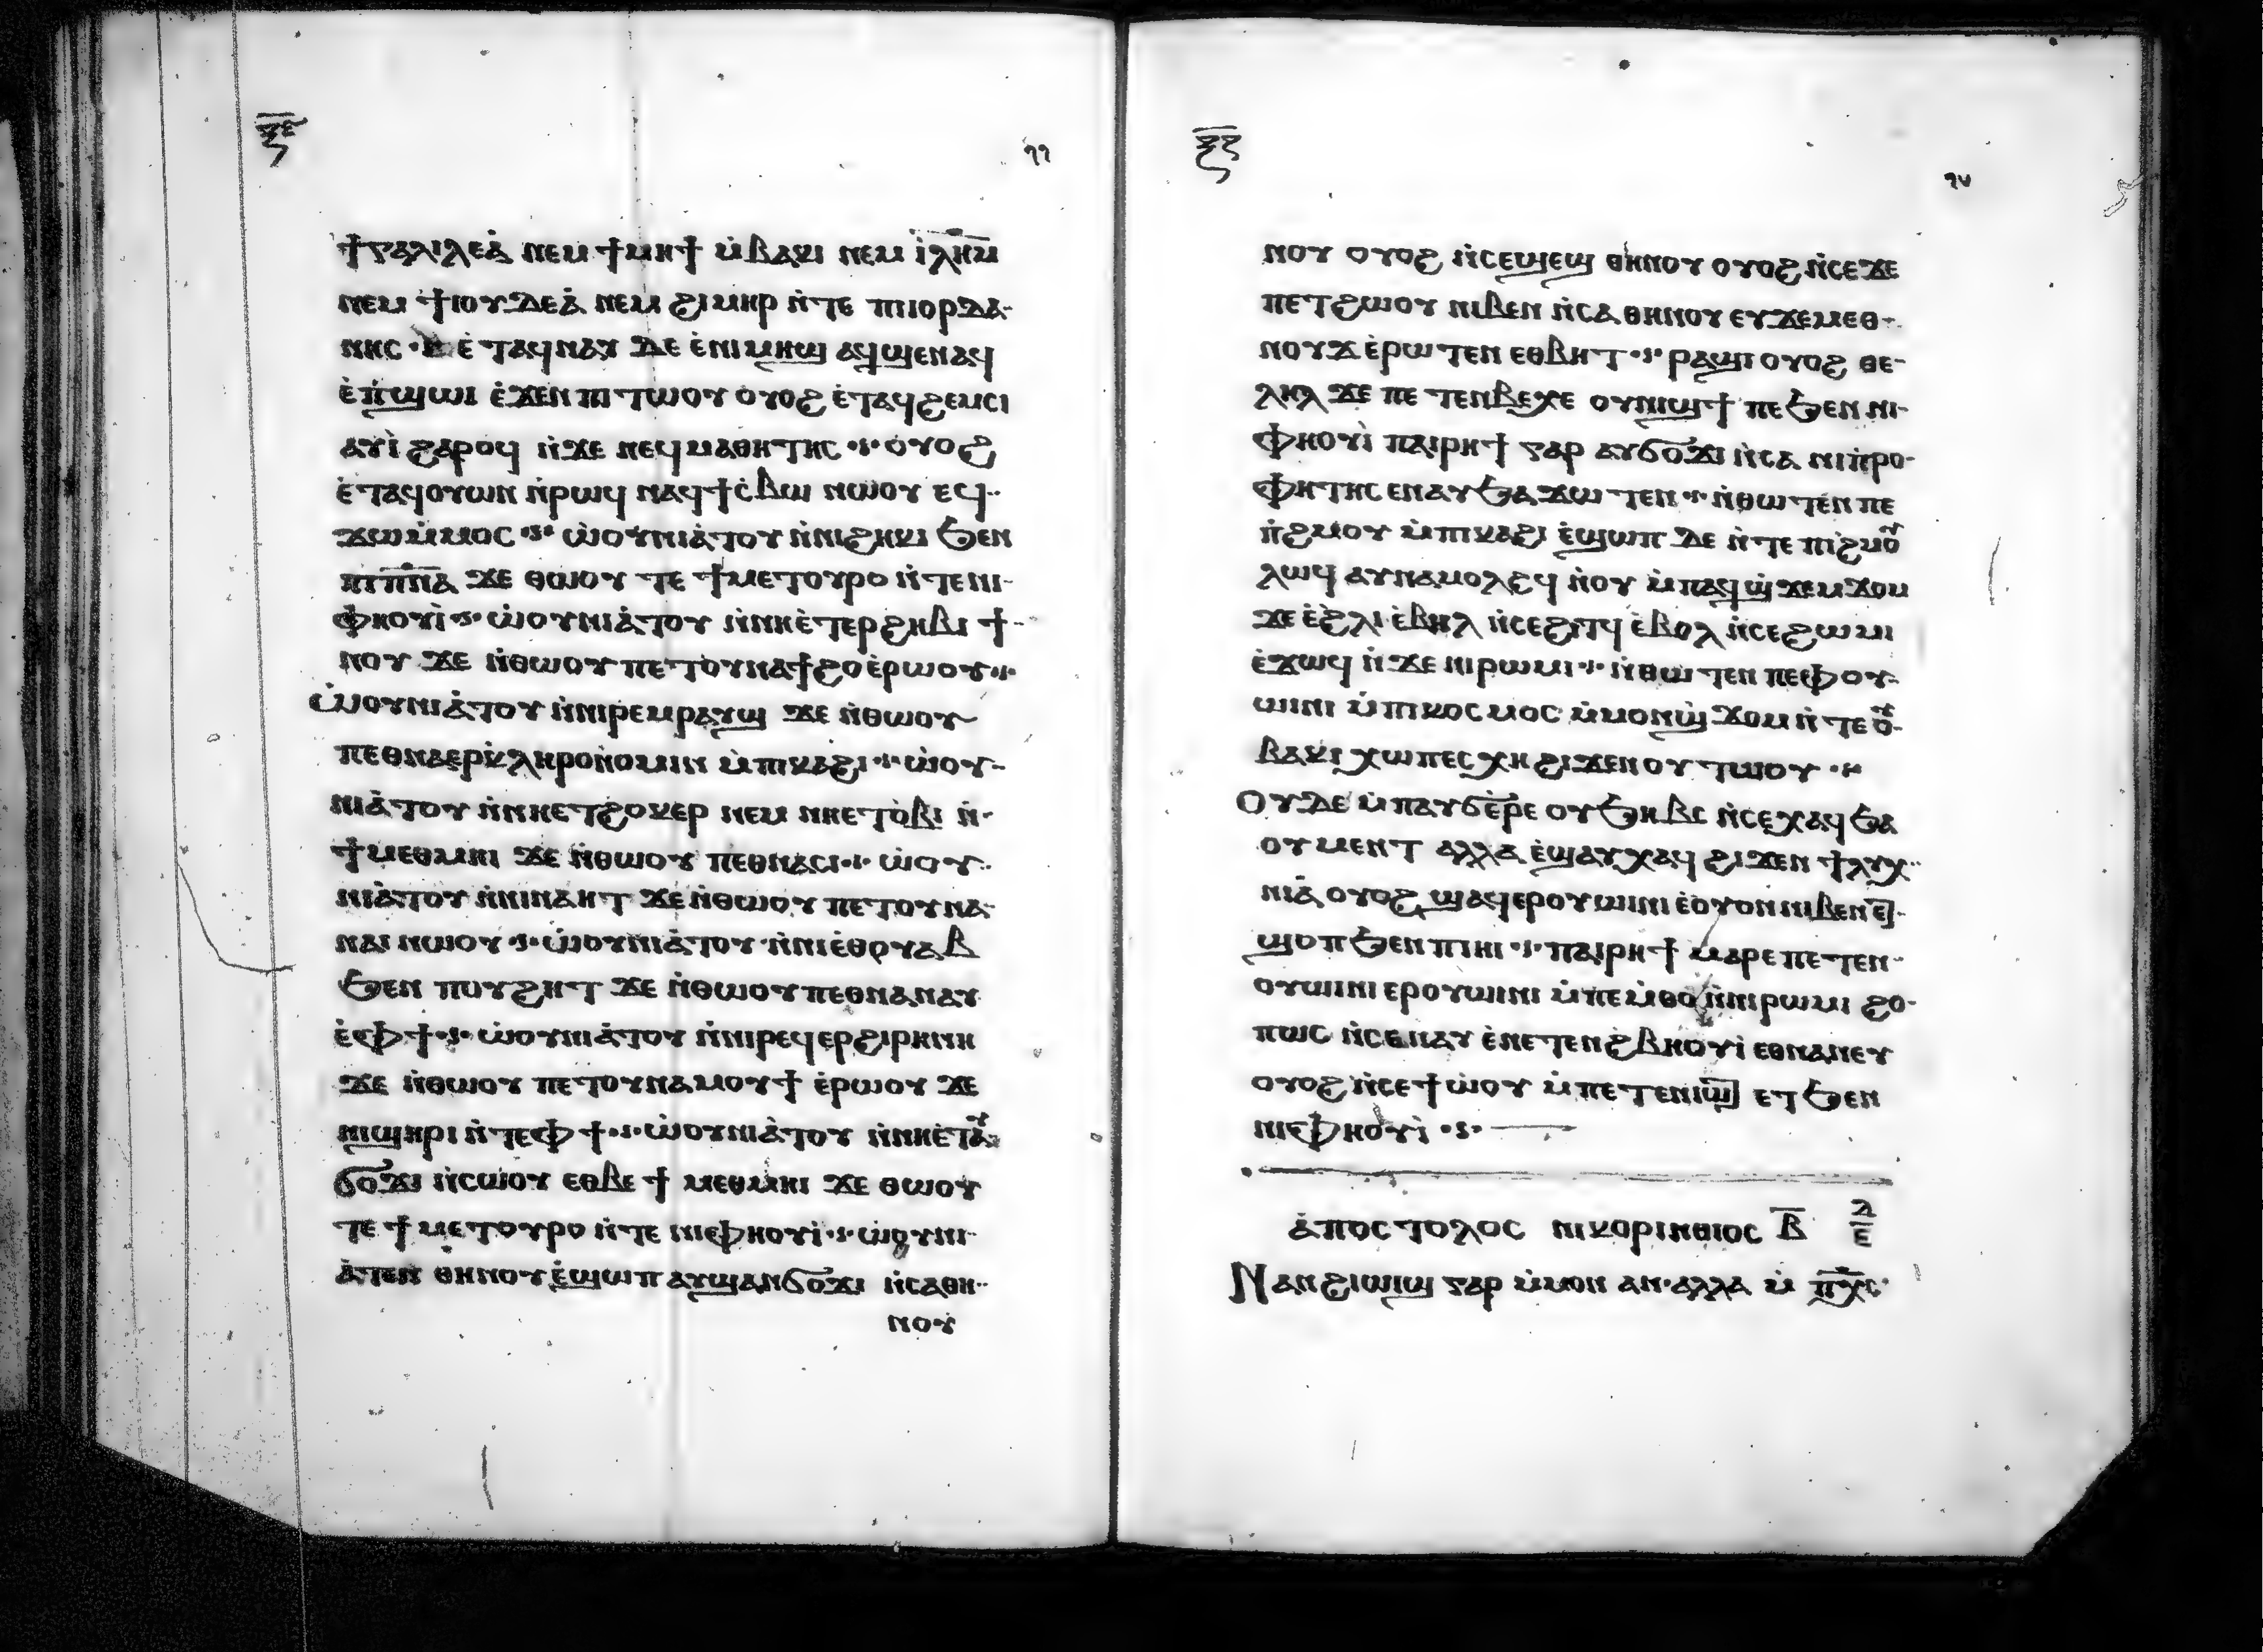 ⲝ̅ⲋ̅
٦٦
ϯⲅⲁⲗⲓⲗⲉⲁ̀ ⲛⲉⲙ ϯⲙⲏϯ ⲙ̀ⲃⲁⲕⲓ ⲛⲉⲙ ⲓ̀ⲗ̅ⲏ̅ⲙ̅
ⲛⲉⲙ ϯⲓⲟⲩⲇⲉⲁ̀ ⲛⲉⲙ ϩⲓⲙⲏⲣ ⲛ̀ⲧⲉ ⲡⲓⲓⲟⲣⲇⲁ-
ⲛⲏⲥ · ⲉ̀ⲧⲁϥⲛⲁⲩ ⲇⲉ ⲉ̀ⲛⲓⲙⲏϣ ⲁϥϣⲉⲛⲁϥ
ⲉ̀ⲡ̀ϣⲱⲓ ⲉ̀ϫⲉⲛ ⲡⲓⲧⲱⲟⲩ ⲟⲩⲟϩ ⲉ̀ⲧⲁϥϩⲉⲙⲥⲓ
ⲁⲩⲓ̀ ϩⲁⲣⲟϥ ⲛ̀ϫⲉ ⲛⲉϥⲙⲁⲑⲏⲧⲏⲥ ·ⲋ· ⲟⲩⲟϩ
ⲉ̀ⲧⲁϥⲟⲩⲱⲛ ⲛ̀ⲣⲱϥ ⲛⲁϥϯⲥ̀ⲃⲱ ⲛⲱⲟⲩ ⲉϥ-
ϫⲱⲙ̀ⲙⲟⲥ ·ⲋ· ⲱ̀ⲟⲩⲛⲓⲁ̀ⲧⲟⲩ ⲛ̀ⲛⲓϩⲏⲕⲓ ϧⲉⲛ
ⲡⲓⲡ̅ⲛ̅ⲁ̅ ϫⲉ ⲑⲱⲟⲩ ⲧⲉ ϯⲙⲉⲧⲟⲩⲣⲟ ⲛ̀ⲧⲉⲛⲓ-
ⲫⲏⲟⲩⲓ̀ ·ⲋ· ⲱ̀ⲟⲩⲛⲓⲁ̀ⲧⲟⲩ ⲛ̀ⲛⲏⲉ̀ⲧⲉⲣϩⲏⲃⲓ ϯ-
ⲛⲟⲩ ϫⲉ ⲛ̀ⲑⲱⲟⲩ ⲡⲉⲧⲟⲩⲛⲁϯϩⲟⲉ̀ⲣⲱⲟⲩ ·ⲋ·
ⲱ̀ⲟⲩⲛⲓⲁ̀ⲧⲟⲩ ⲛ̀ⲛⲓⲣⲉⲙⲣⲁⲩϣ ϫⲉ ⲛ̀ⲑⲱⲟⲩ
ⲡⲉⲑⲛⲁⲉⲣⲕ̀ⲗⲏⲣⲟⲛⲟⲙⲓⲛ ⲙ̀ⲡⲓⲕⲁϩⲓ ·ⲋ· ⲱ̀ⲟⲩ-
ⲛⲓⲁ̀ⲧⲟⲩ ⲛ̀ⲛⲏⲉⲧϩⲟⲕⲉⲣ ⲛⲉⲙ ⲛⲏⲉⲧⲟⲃⲓ ⲛ̀-
ϯⲙⲉⲑⲙⲏⲓ ϫⲉ ⲛ̀ⲑⲱⲟⲩ ⲡⲉⲑⲛⲁⲥⲓ ·ⲋ· ⲱ̀ⲟⲩ-
ⲛⲓⲁ̀ⲧⲟⲩ ⲛ̀ⲛⲓⲛⲁⲏⲧ ϫⲉ ⲛ̀ⲑⲱⲟⲩ ⲡⲉⲧⲟⲩⲛⲁ-
ⲛⲁⲓ ⲛⲱⲟⲩ ·ⲋ· ⲱ̀ⲟⲩⲛⲓⲁ̀ⲧⲟⲩ ⲛ̀ⲛⲓⲉ̀ⲑⲟⲩⲁⲃ
ϧⲉⲛ ⲡⲟⲩϩⲏⲧ ϫⲉ ⲛ̀ⲑⲱⲟⲩ ⲡⲉⲑⲛⲁⲛⲁⲩ
ⲉ̀ⲫϯ ·ⲋ· ⲱ̀ⲟⲩⲛⲓⲁ̀ⲧⲟⲩ ⲛ̀ⲛⲓⲣⲉϥⲉⲣϩⲓⲣⲏⲛⲏ
ϫⲉ ⲛ̀ⲑⲱⲟⲩ ⲡⲉⲧⲟⲩⲛⲁⲙⲟⲩϯ ⲉ̀ⲣⲱⲟⲩ ϫⲉ
ⲛⲓϣⲏⲣⲓ ⲛ̀ⲧⲉⲫϯ ·ⲋ· ⲱ̀ⲟⲩⲛⲓⲁ̀ⲧⲟⲩ ⲛ̀ⲛⲏⲉ̀ⲧⲁⲩ
ϭⲟϫⲓ ⲛ̀ⲥⲱⲟⲩ ⲉⲑⲃⲉ ϯⲙⲉⲑⲙⲏⲓ ϫⲉ ⲑⲱⲟⲩ
ⲧⲉ ϯⲙⲉⲧⲟⲩⲣⲟ ⲛ̀ⲧⲉ ⲛⲓⲫⲏⲟⲩⲓ̀ ·ⲋ· ⲱ̀ⲟⲩⲛⲓ-
ⲁ̀ⲧⲉⲛ ⲑⲏⲛⲟⲩ ⲉ̀ϣⲱⲡ ⲁⲩϣⲁⲛϭⲟϫⲓ ⲛ̀ⲥⲁⲑⲏ-
ⲛⲟⲩ
ⲝ̅ⲍ̅
٦٧
ⲛⲟⲩ ⲟⲩⲟϩ ⲛ̀ⲥⲉϣⲉϣ ⲑⲏⲛⲟⲩ ⲟⲩⲟϩ ⲛ̀ⲥⲉϫⲉ
ⲡⲉⲧϩⲱⲟⲩ ⲛⲓⲃⲉⲛ ⲛ̀ⲥⲁ ⲑⲏⲛⲟⲩ ⲉⲩϫⲉⲙⲉⲑ-
ⲛⲟⲩϫ ⲉ̀ⲣⲱⲧⲉⲛ ⲉⲑⲃⲏⲧ ·ⲋ· ⲣⲁϣⲓ ⲟⲩⲟϩ ⲑⲉ-
ⲗⲏⲗ ϫⲉ ⲡⲉⲧⲉⲛⲃⲉⲭⲉ ⲟⲩⲛⲓϣϯ ⲡⲉ ϧⲉⲛ ⲛⲓ-
ⲫⲏⲟⲩⲓ̀ ⲡⲁⲓⲣⲏϯ ⲅⲁⲣ ⲁⲩϭⲟϫⲓ ⲛ̀ⲥⲁ ⲛⲓⲡ̀ⲣⲟ-
ⲫⲏⲧⲏⲥ ⲉⲛⲁⲩϧⲁϫⲱⲧⲉⲛ ·ⲋ· ⲛ̀ⲑⲱⲧⲉⲛ ⲡⲉ
ⲡ̀ϩⲙⲟⲩ ⲙ̀ⲡⲓⲕⲁϩⲓ ⲉ̀ϣⲱⲡ ⲇⲉ ⲛ̀ⲧⲉ ⲡⲓϩⲙⲟⲩ
ⲗⲱϥ ⲁⲩⲛⲁⲙⲟⲗϩϥ ⲛ̀ⲟⲩ ⲙ̀ⲡⲁϥϣ̀ϫⲉⲙϫⲟⲙ
ϫⲉ ⲉ̀ϩ̀ⲗⲓ ⲉ̀ⲃⲏⲗ ⲛ̀ⲥⲉϩⲓⲧϥ ⲉ̀ⲃⲟⲗ ⲛ̀ⲥⲉϩⲱⲙⲓ
ⲉ̀ϫⲱϥ ⲛ̀ϫⲉ ⲛⲓⲣⲱⲙⲓ ·ⲋ· ⲛ̀ⲑⲱⲧⲉⲛ ⲡⲉⲫⲟⲩ-
ⲱⲓⲛⲓ ⲙ̀ⲡⲓⲕⲟⲥⲙⲟⲥ ⲙ̀ⲙⲟⲛϣ̀ϫⲟⲙ ⲛ̀ⲧⲉⲟⲩ-
ⲃⲁⲕⲓ ⲭⲱⲡ ⲉⲥⲭⲏ ϩⲓϫⲉⲛ ⲟⲩⲧⲱⲟⲩ ·ⲋ·
ⲟⲩⲇⲉ ⲙ̀ⲡⲁⲩϭⲉ̀ⲣⲉ ⲟⲩϧⲏⲃⲥ ⲛ̀ⲥⲉⲭⲁϥ ϧⲁ
ⲟⲩⲙⲉⲛⲧ ⲁⲗⲗⲁ ⲉ̀ϣⲁⲩⲭⲁϥ ϩⲓϫⲉⲛ ϯⲗⲩⲭ-
ⲛⲓⲁ̀ ⲟⲩⲟϩ ϣⲁϥⲉⲣⲟⲩⲱⲓⲛⲓ ⲉ̀ⲟⲩⲟⲛ ⲛⲓⲃⲉⲛ ⲉⲧ-
ϣⲟⲡ ϧⲉⲛ ⲡⲓⲏⲓ ·ⲋ· ⲡⲁⲓⲣⲏϯ ⲙⲁⲣⲉ ⲡⲉⲧⲉⲛ-
ⲟⲩⲱⲓⲛⲓ ⲉⲣⲟⲩⲱⲓⲛⲓ ⲙ̀ⲡⲉⲙ̀ⲑⲟ ⲛ̀ⲛⲓⲣⲱⲙⲓ ϩⲟ-
ⲡⲱⲥ ⲛ̀ⲥⲉⲛⲁⲩ ⲉ̀ⲛⲉⲧⲉⲛϩⲃⲏⲟⲩⲓ̀ ⲉⲑⲛⲁⲛⲉⲩ
ⲟⲩⲟϩ ⲛ̀ⲥⲉϯⲱ̀ⲟⲩ ⲙ̀ⲡⲉⲧⲉⲛⲓⲱⲧ ⲉⲧϧⲉⲛ
ⲛⲓⲫⲏⲟⲩⲓ̀ ·ⲋ·
ⲁ̀ⲡⲟⲥⲧⲟⲗⲟⲥ ⲛⲓⲕⲟⲣⲓⲛⲑⲓⲟⲥ ⲃ̅ ⲇ ⲉ̅
Ⲛⲁⲛϩⲓⲱⲓϣ ⲅⲁⲣ ⲙ̀ⲙⲟⲛ ⲁⲛ·ⲁⲗⲗⲁ ⲙ̀ ⲡ̅ⲭ̅ⲥ̅